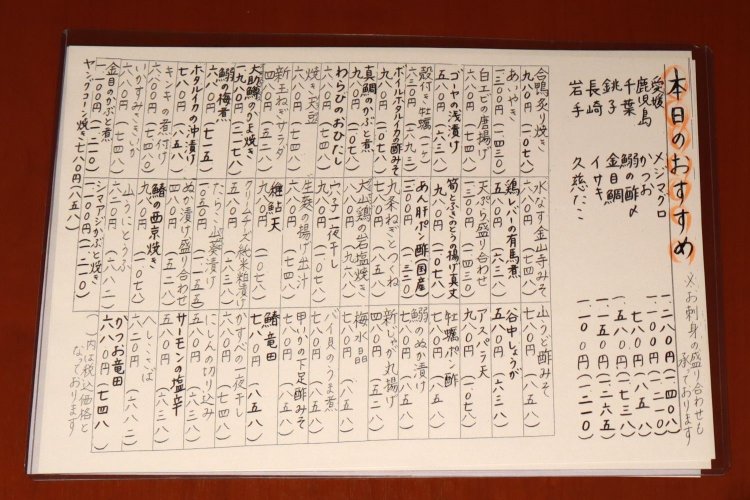 本日のおすすめ
※お刺身の盛り合わせも
承っております
愛媛 メジマグロ 一、二八〇円(一、四〇八)
鹿児島 かつお 一、一〇〇円(一、二一〇)
千葉 鰯の酢〆 七八〇円(八五八)
銚子 金目鯛 一、五八〇円(一、七三八)
長崎 イサキ 一、一五〇円(一、二六五)
岩手 久慈たこ 一、一〇〇円(一、二一〇)
合鴨炙り焼き
九八〇円(一、〇七八)
あいやき
一、三〇〇円(一、四三〇)
白エビの唐揚げ
六八〇円(七四八)
ゴーヤの浅漬け
五八〇円(六三八)
殻付き牡蠣(一ヶ)
ボイルホタルイカ酢みそ
九八〇円(一、〇七八)
真鯛のかぶと煮
九八〇円(一、〇七八)
わらびのおひたし
六八〇円(七四八)
焼き天豆
六八〇円(七四八)
新玉ねぎサラダ
大助鱒かま焼き
鰯の梅煮
六五〇円(七一五)
ホタルイカの沖漬け
七八〇円(八五八)
キンキの煮付け
六八〇円(七四八)
金目のかぶと煮
一、一〇〇円(一、二一〇)
ヤングコーン焼き 七八〇円(八五八)
水なす金山寺みそ
六八〇円(七四八)
鶏レバーの有馬煮
五八〇円(六三八)
天ぷら盛り合わせ
筍とふきのとうの揚げ真丈
九八〇円(一、〇七八)
あん肝ポン酢(国産)
九条ねぎとつくね
大山鶏の岩塩焼き
八八〇円(九六八)
穴子一夜干し
九八〇円(一、〇七八)
生麩の揚げ出汁
六八〇円(七四八)
稚鮎天
九八〇円(一、〇七八)
クリームチーズ純米粕漬け
五八〇円(六三八)
たらこ山葵漬け
ぬか漬け盛り合わせ
鰆の西京焼き
九八〇円(一、〇七八)
山うにとうふ
シマアジかぶと焼き
一、一〇〇円(一、二一〇)
山うど酢みそ
七八〇円(八五八)
谷中しょうが
五八〇円(六三八)
アスパラ天
九八〇円(一、〇七八)
牡蠣ポン酢
鰯のぬか漬け
七八〇円(八五八)
新じゃが丸揚げ
梅水晶
バイ貝のうま煮
七八〇円(八五八)
甲いかの下足酢みそ
六八〇円(七四八)
鰆竜田
七八〇円(八五八)
かすべの一夜干し
六八〇円(七四八)
にしんの切り込み
五八〇円(六三八)
サーモンの塩辛
へしこさば
かつお竜田
( )内は税込価格と
なっております